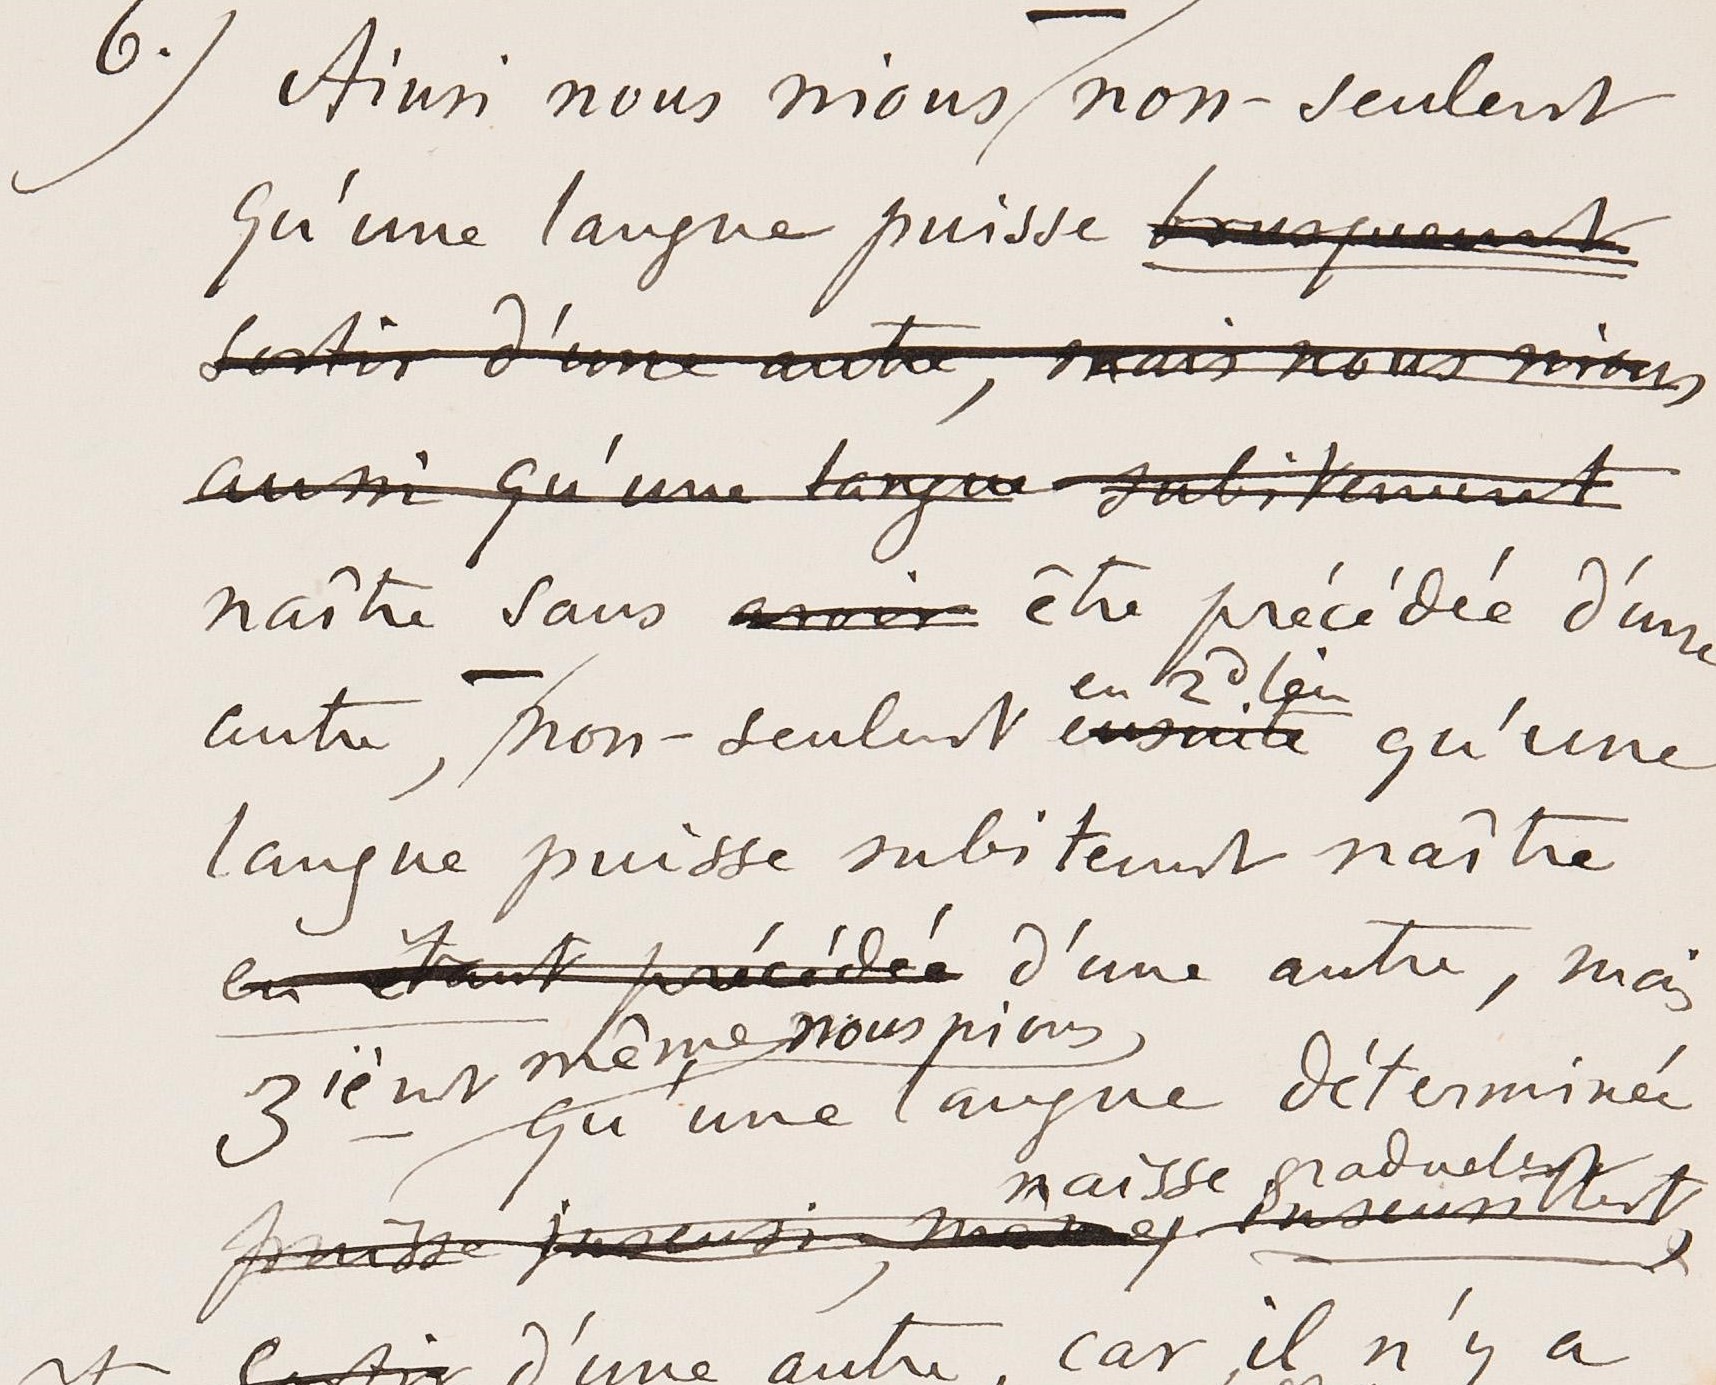 6.) Ainsi nous nions non-seulemt
qu'une langue puisse brusquemt
sortir d'une autre, mais nous nions
aussi qu'une langue subitement
naître sans avoir être précédée d'une
en 2d lieu
autre, non-seulemt ensuite qu'une
langue puisse subitemt naître
en étant précédée d'une autre, mais
même nous nions
3ièmt qu'une langue déterminée
naisse graduelemt
puisse insensi, même, insensiblemt,
sortir d'une autre, car il n'y a